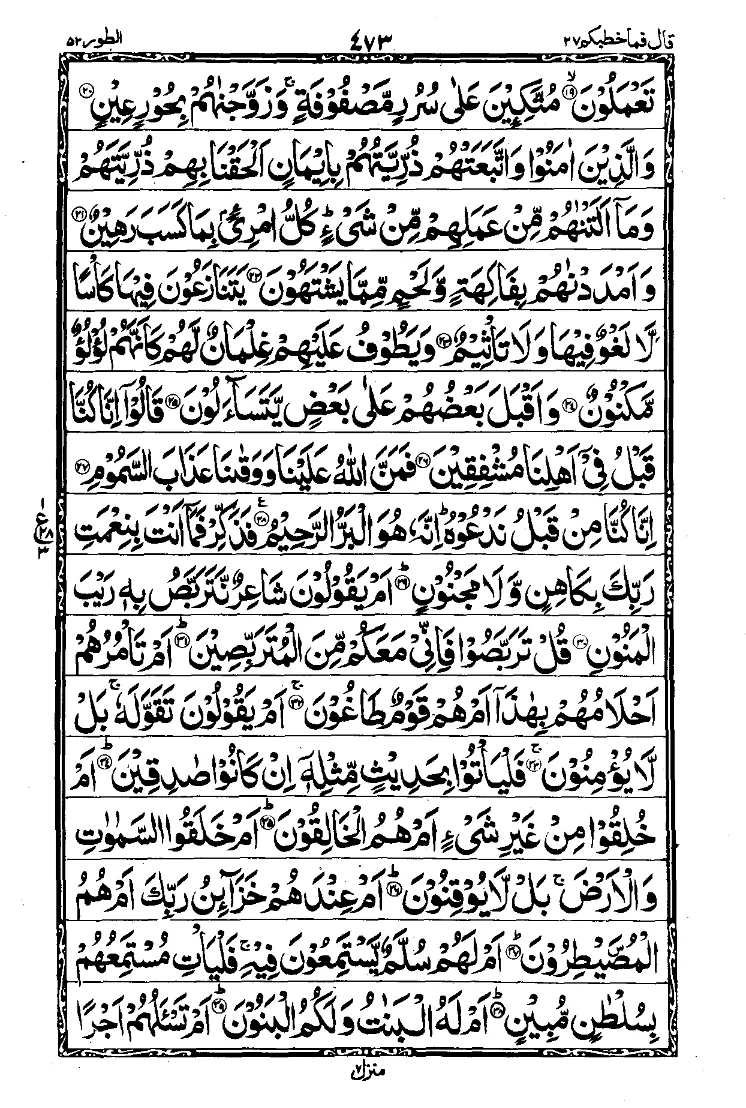 قال فما خطبكم ٢٧ ٤٧٣ الطور ٥٢
تَعْمَلُوْنَ ۙ﴿۱۹﴾ مُتَّكِـِٕيْنَ عَلٰى سُرُرٍ مَّصْفُوْفَةٍ ۚ وَ زَوَّجْنٰهُمْ بِحُوْرٍ عِيْنٍ ﴿۲۰﴾
وَالَّذِيْنَ اٰمَنُوْا وَاتَّبَعَتْهُمْ ذُرِّيَّتُهُمْ بِاِيْمَانٍ اَلْحَقْنَا بِهِمْ ذُرِّيَّتَهُمْ
وَمَاۤ اَلَتْنٰهُمْ مِّنْ عَمَلِهِمْ مِّنْ شَيْءٍ ؕ كُلُّ امْرِیٴٍۭ بِمَا كَسَبَ رَهِيْنٌ ﴿۲۱﴾
وَاَمْدَدْنٰهُمْ بِفَاكِهَةٍ وَّلَحْمٍ مِّمَّا يَشْتَهُوْنَ ﴿۲۲﴾ يَتَنَازَعُوْنَ فِيْهَا كَاْسًا
لَّا لَغْوٌ فِيْهَا وَلَا تَاْثِيْمٌ ﴿۲۳﴾ وَيَطُوْفُ عَلَيْهِمْ غِلْمَانٌ لَّهُمْ كَاَنَّهُمْ لُؤْلُؤٌ
مَّكْنُوْنٌ ﴿۲۴﴾ وَاَقْبَلَ بَعْضُهُمْ عَلٰى بَعْضٍ يَّتَسَآءَلُوْنَ ﴿۲۵﴾ قَالُوْۤا اِنَّا كُنَّا
قَبْلُ فِيْۤ اَهْلِنَا مُشْفِقِيْنَ ﴿۲۶﴾ فَمَنَّ اللّٰهُ عَلَيْنَا وَوَقٰىنَا عَذَابَ السَّمُوْمِ ﴿۲۷﴾
اِنَّا كُنَّا مِنْ قَبْلُ نَدْعُوْهُ ؕ اِنَّهٗ هُوَ الْبَرُّ الرَّحِيْمُ ﴿۲۸﴾ ع فَذَكِّرْ فَمَاۤ اَنْتَ بِنِعْمَتِ
١ ع ٢٨ ٣
رَبِّكَ بِكَاهِنٍ وَّلَا مَجْنُوْنٍ ؕ﴿۲۹﴾ اَمْ يَقُوْلُوْنَ شَاعِرٌ نَّتَرَبَّصُ بِهٖ رَيْبَ
الْمَنُوْنِ ﴿۳۰﴾ قُلْ تَرَبَّصُوْا فَاِنِّيْ مَعَكُمْ مِّنَ الْمُتَرَبِّصِيْنَ ؕ﴿۳۱﴾ اَمْ تَاْمُرُهُمْ
اَحْلَامُهُمْ بِهٰذَاۤ اَمْ هُمْ قَوْمٌ طَاغُوْنَ ۚ﴿۳۲﴾ اَمْ يَقُوْلُوْنَ تَقَوَّلَهٗ ۚ بَلْ
لَّا يُؤْمِنُوْنَ ۚ﴿۳۳﴾ فَلْيَاْتُوْا بِحَدِيْثٍ مِّثْلِهٖۤ اِنْ كَانُوْا صٰدِقِيْنَ ؕ﴿۳۴﴾ اَمْ
خُلِقُوْا مِنْ غَيْرِ شَيْءٍ اَمْ هُمُ الْخَالِقُوْنَ ؕ﴿۳۵﴾ اَمْ خَلَقُوا السَّمٰوٰتِ
وَالْاَرْضَ ۚ بَلْ لَّا يُوْقِنُوْنَ ؕ﴿۳۶﴾ اَمْ عِنْدَهُمْ خَزَآئِنُ رَبِّكَ اَمْ هُمُ
الْمُصَۜيْطِرُوْنَ ؕ﴿۳۷﴾ اَمْ لَهُمْ سُلَّمٌ يَّسْتَمِعُوْنَ فِيْهِ ۚ فَلْيَاْتِ مُسْتَمِعُهُمْ
بِسُلْطٰنٍ مُّبِيْنٍ ؕ﴿۳۸﴾ اَمْ لَهُ الْبَنٰتُ وَلَكُمُ الْبَنُوْنَ ؕ﴿۳۹﴾ اَمْ تَسْـَٔلُهُمْ اَجْرًا
منزل ٧